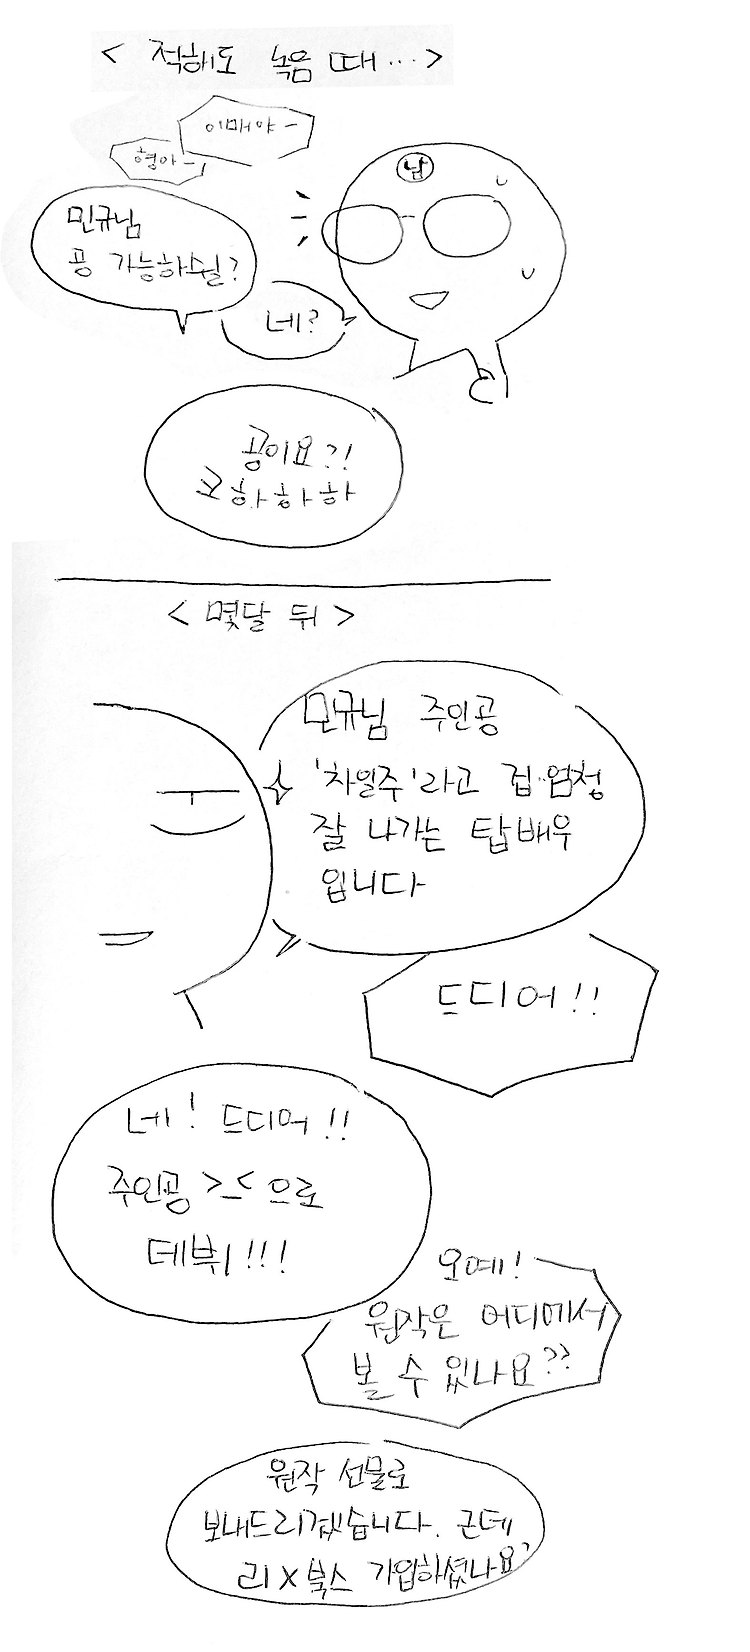 < 적해도 녹음 때… >
이매야-
형아-
남
민규님
공 가능하쉴?
네?
공이요?!
흐하하하
< 몇달 뒤 >
민규님 주인공
'차일주'라고 겁·엄청
잘 나가는 탑배우
입니다
드디어!!
네! 드디어!!
주인공 >_< 으로
데뷔!!!
오예!
원작은 어디에서
볼 수 있나요??
원작 선물로
보내드리겠습니다. 근데
리X북스 가입하셨나요?